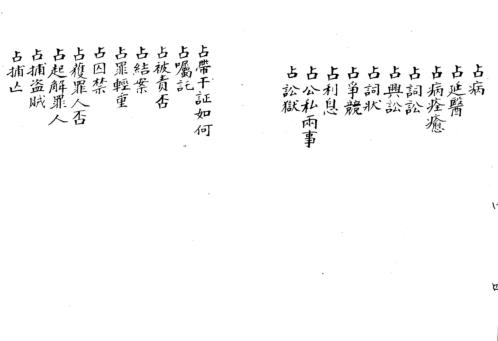 占病
占延醫
占病痊癒
占詞訟
占興訟
占詞狀
占爭競
占利息
占公私兩事
占訟獄
占帶干証如何
占囑託
占被責否
占結案
占罪輕重
占囚禁
占獲罪人否
占起解罪人
占捕盜賊
占捕亡